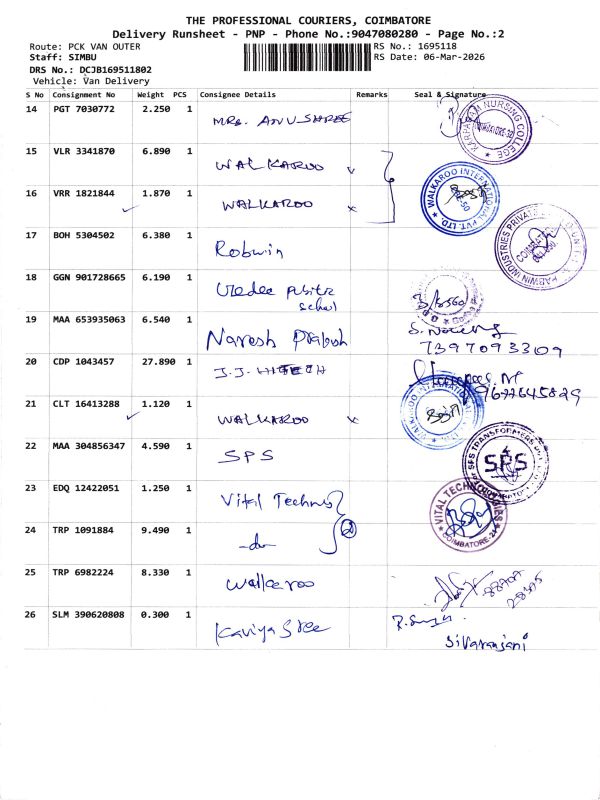 THE PROFESSIONAL COURIERS, COIMBATORE
Delivery Runsheet - PNP - Phone No.:9047080280 - Page No.:2
Route: PCK VAN OUTER
RS No.: 1695118
Staff: SIMBU
RS Date: 06-Mar-2026
DRS No.: DCJB169511802
Vehicle: Van Delivery
S No Consignment No Weight PCS Consignee Details Remarks Seal & Signature
14 PGT 7030772 2.250 1 MRS. ANUSHREE KARPAGAM NURSING COLLEGE
15 VLR 3341870 6.890 1 WALKAROO
16 VRR 1821844 1.870 1 WALKAROO x WALKAROO INTERNATIONAL PVT. LTD.
17 BOH 5304502 6.380 1 Robwin
18 GGN 901728665 6.190 1
19 MAA 653935063 6.540 1 Naresh Prabhu 7397093309
20 CDP 1043457 27.890 1 J.J. HITECH 9677645829
21 CLT 16413288 1.120 1 WALKAROO x WALKAROO INTERNATIONAL
22 MAA 304856347 4.590 1 SPS SPS TRANSFORMERS
23 EDQ 12422051 1.250 1 Vital Techno VITAL TECHNOLOGIES COIMBATORE-21
24 TRP 1091884 9.490 1 -do- 2
25 TRP 6982224 8.330 1 Walkaroo
26 SLM 390620808 0.300 1 Kaviya Sree
Sivaranjani